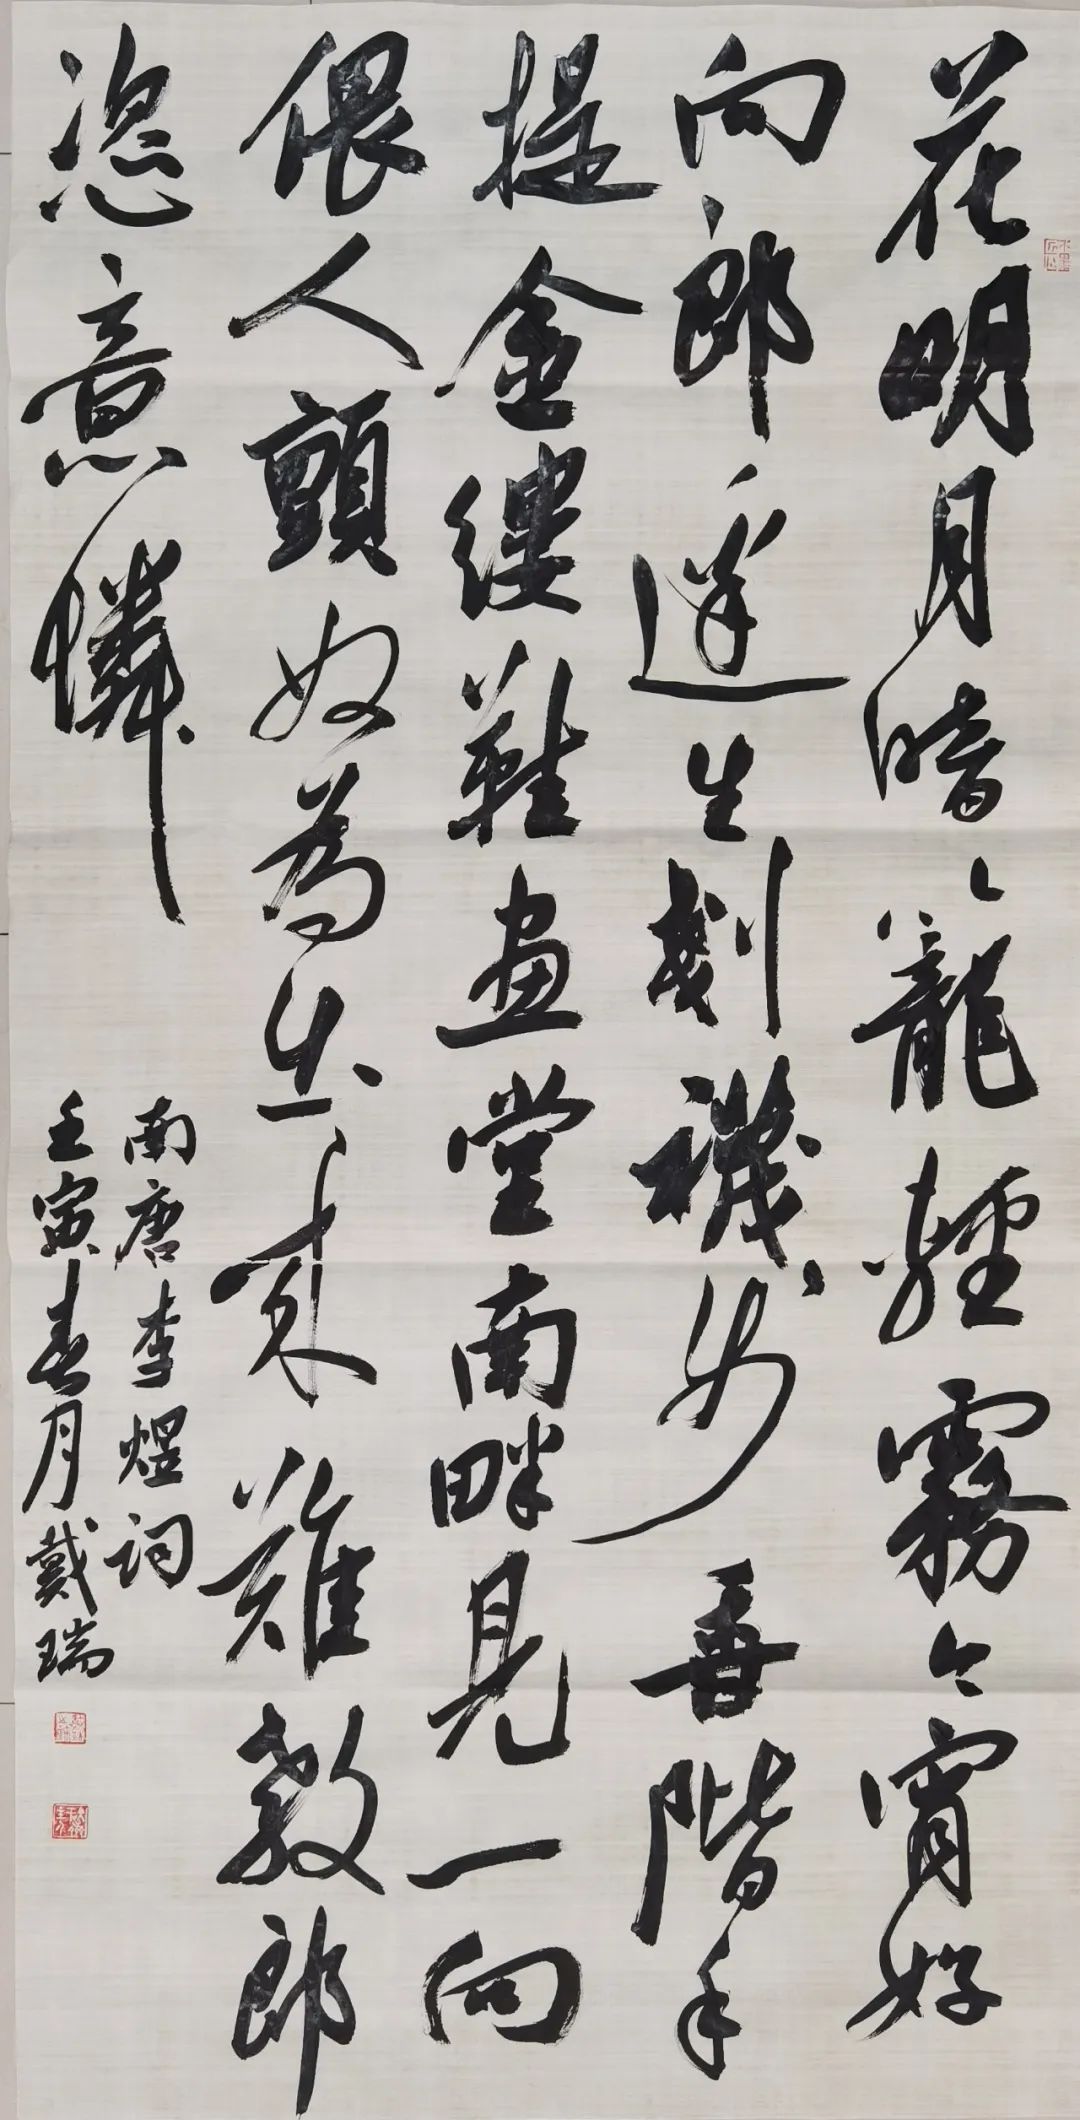 花明月暗籠輕霧今宵好
向郎邊去剗襪步香階手
提金縷鞋畫堂南畔見一向
偎人顫奴為出來難教郎
恣意憐
南唐李煜詞
壬寅春月戴瑞